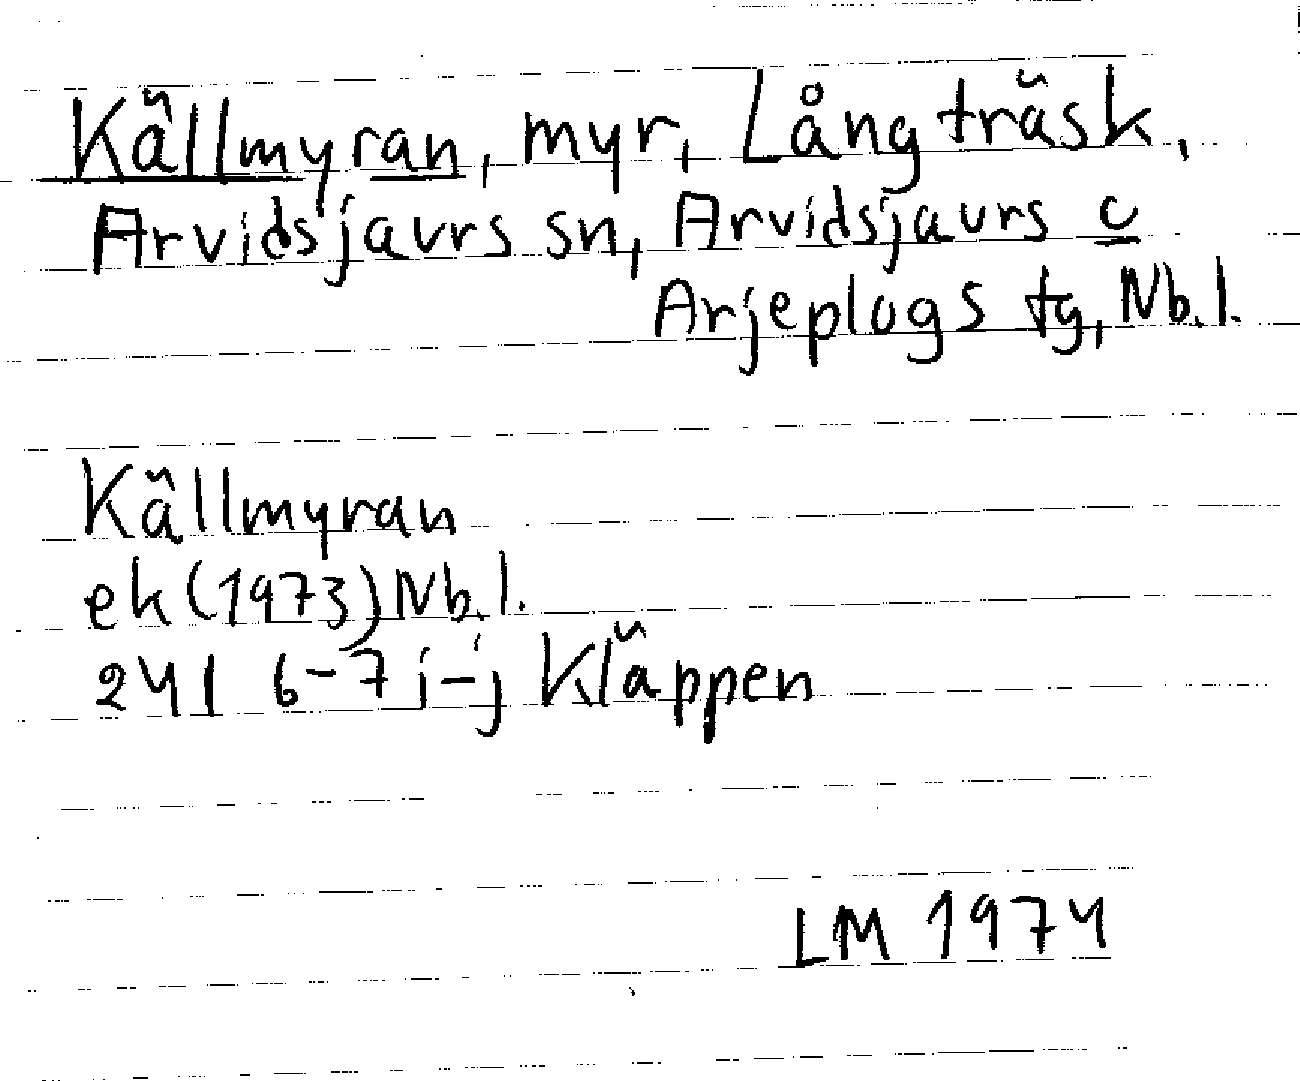 Källmyran, myr, Långträsk,
Arvidsjaurs sn, Arvidsjaurs o
Arjeplogs tg, Nb.l.
Källmyran
ek (1973) Nb.l.
24I 6-7 i-j Kläppen
LM 1974